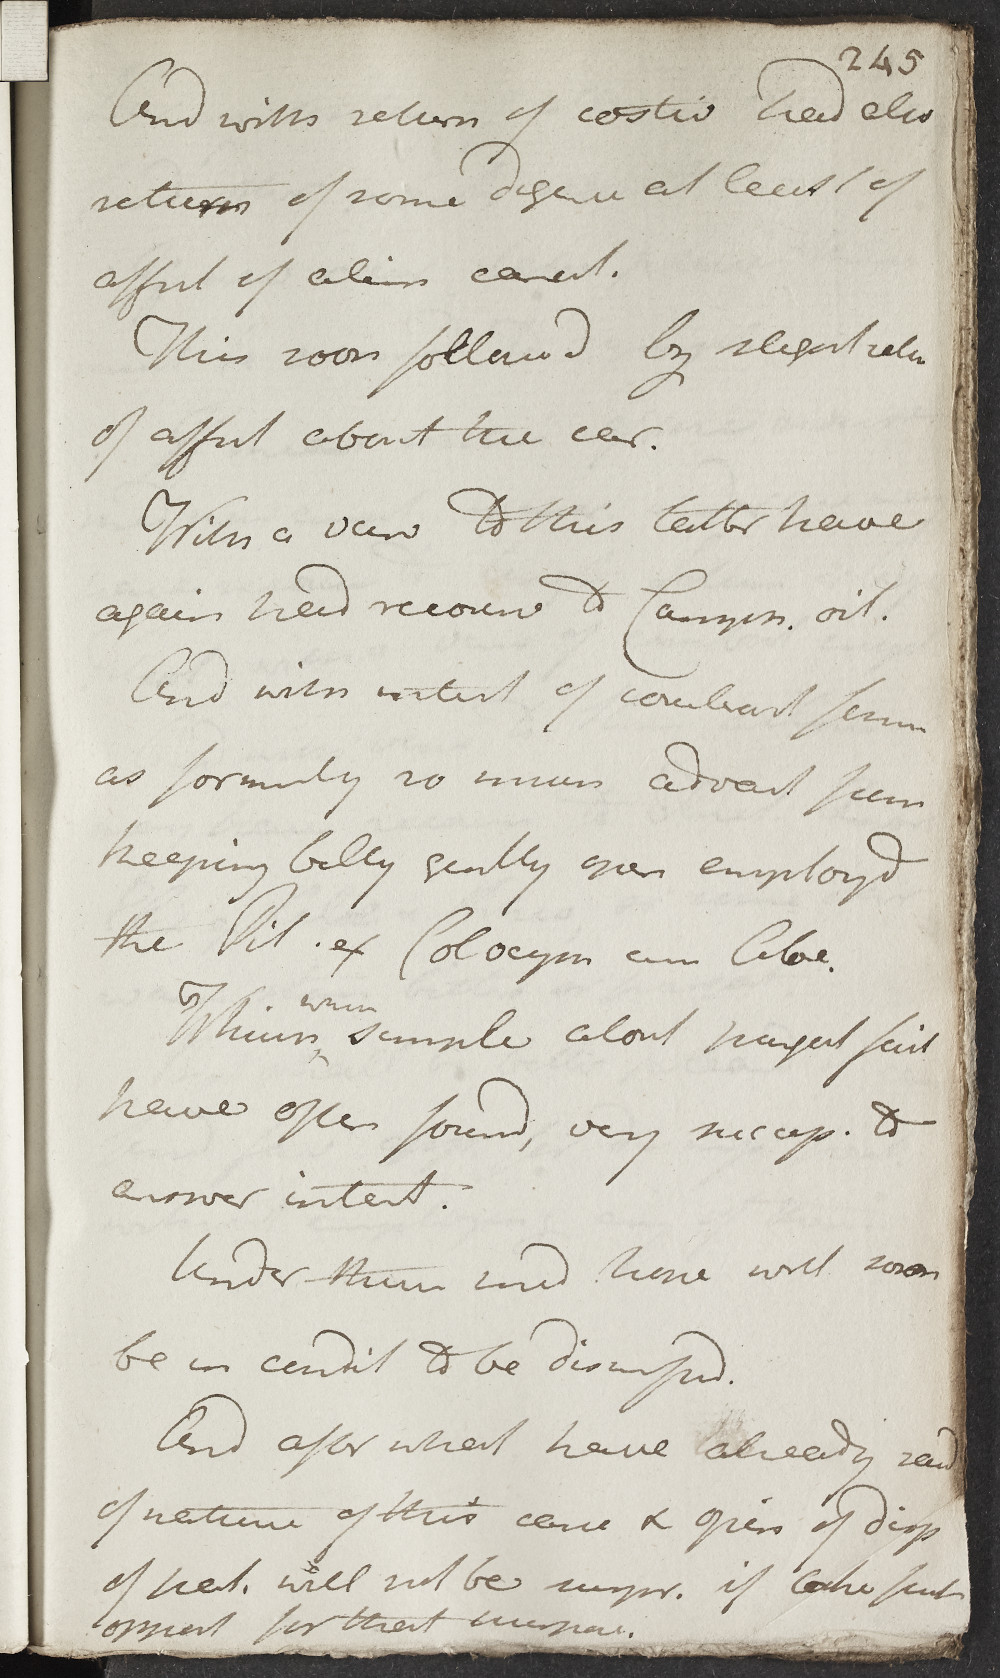 245
And with return of costiv had also
return of some degree at least of
affect of alim canal.
This soon follow'd by slight retur
of affect about the ear.
With a view to this latter have
again had recours to Camph. oil.
And with intent of
as formerly so
keeping belly gently open employ'd
the Pil. ex Colocyn cum Aloe.
Which, when simple aloet purgat fail
have often found, very success. to
answer intent.
Under them and hope will soon
be in condit to be dismissed.
And after what have already said
of nature of this case & opin of disp
of pat. will not be surpr. if take first
opport for that purpose.